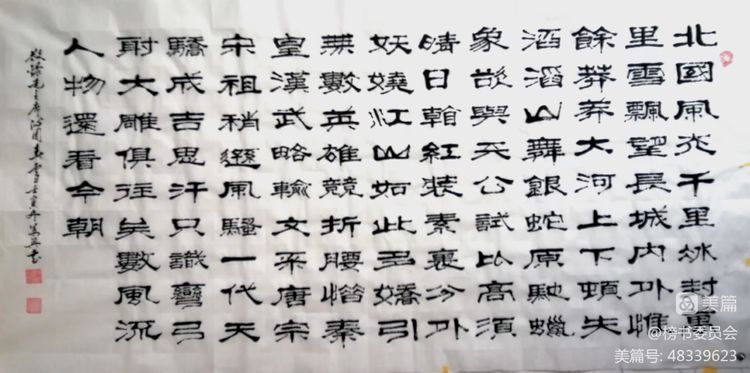 北國風光千里冰封萬
里雪飄望長城内外惟
餘莽莽大河上下頓失
滔滔山舞銀蛇原馳蠟
象欲與天公試比高須
晴日翰紅裝素裹分外
妖嬈江山如此多嬌引
無數英雄競折腰惜秦
皇漢武略輸文采唐宗
宋祖稍遜風騷一代天
驕成吉思汗只識彎弓
射大雕俱往矣數風流
人物還看今朝
毛主席沁園春雪壬寅年書
美篇
@榜书委员会
美篇号: 48339623